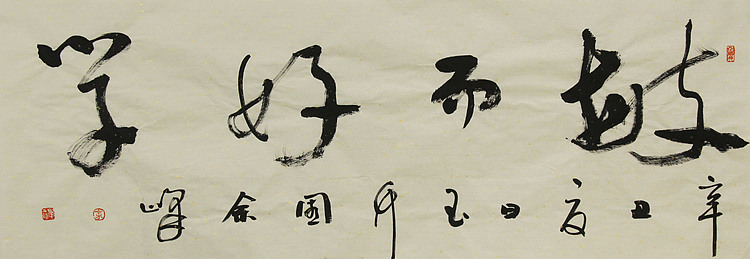 敏而好学
辛丑夏日玉余峰